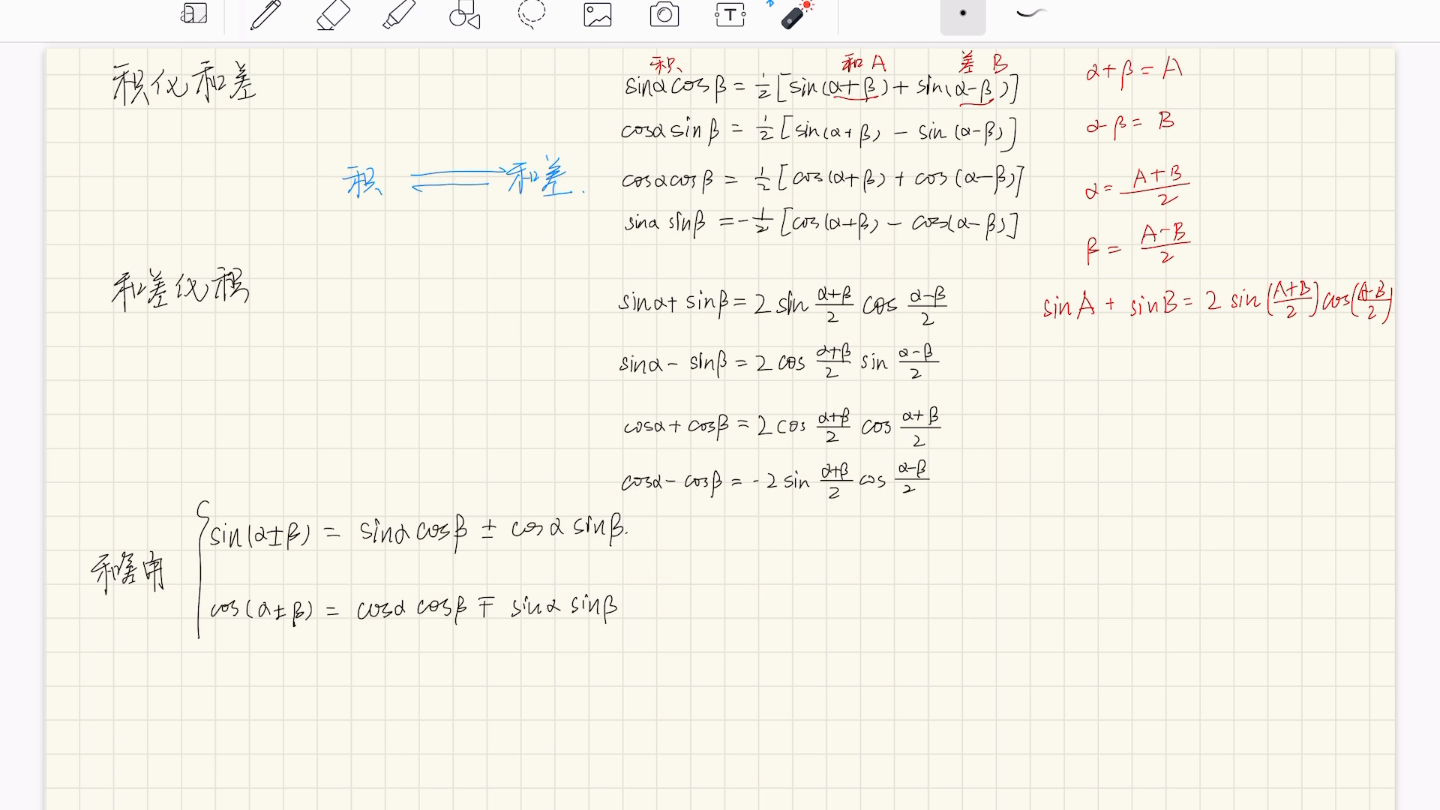 积化和差
积 和A 差 B
sinαcosβ = 1/2 [sin(α+β) + sin(α-β)]
α+β = A
cosαsinβ = 1/2 [sin(α+β) - sin(α-β)]
α-β = B
积 ⇌ 和差.
cosαcosβ = 1/2 [cos(α+β) + cos(α-β)]
α = (A+B)/2
sinα sinβ = -1/2 [cos(α+β) - cos(α-β)]
β = (A-B)/2
和差化积
sinα + sinβ = 2 sin (α+β)/2 cos (α-β)/2
sinA + sinB = 2 sin((A+B)/2) cos((A-B)/2)
sinα - sinβ = 2 cos (α+β)/2 sin (α-β)/2
cosα + cosβ = 2 cos (α+β)/2 cos (α+β)/2
cosα - cosβ = -2 sin (α+β)/2 cos (α-β)/2
和差角
sin(α±β) = sinαcosβ ± cosαsinβ.
cos(α±β) = cosαcosβ ∓ sinαsinβ